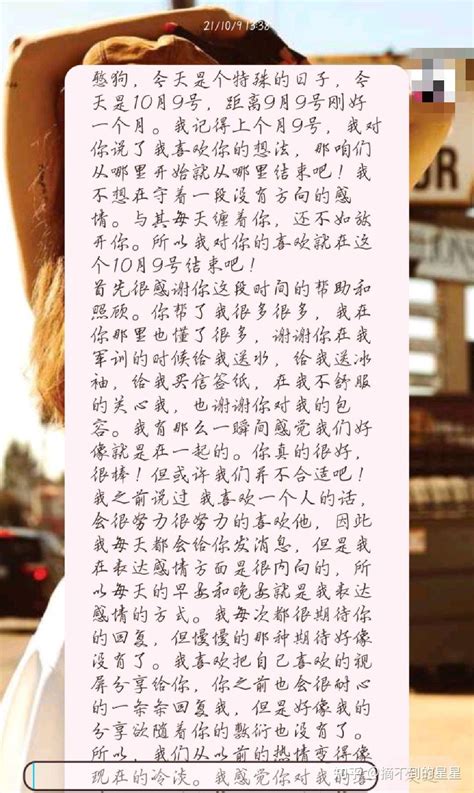 21/10/9 13:38
憨狗，今天是个特殊的日子，今
天是10月9号，距离9月9号刚好
一个月。我记得上个月9号，我对
你说了我喜欢你的想法，那咱们
从哪里开始就从哪里结束吧！我
不想在守着一段没有方向的感
情。与其每天缠着你，还不如放
开你。所以我对你的喜欢就在这
个10月9号结束吧！
首先很感谢你这段时间的帮助和
照顾。你帮了我很多很多，我在
你那里也懂了很多，谢谢你在我
军训的时候给我送水，给我送冰
袖，给我买信签纸，在我不舒服
的关心我，也谢谢你对我的包
容。我有那么一瞬间感觉我们好
像就是在一起的。你真的很好，
很棒！但或许我们并不合适吧！
我之前说过 我喜欢一个人的话，
会很努力很努力的喜欢他，因此
我每天都会给你发消息，但是我
在表达感情方面是很内向的，所
以每天的早安和晚安就是我表达
感情的方式。我每次都很期待你
的回复，但慢慢的那种期待好像
没有了。我喜欢把自己喜欢的视
屏分享给你，你之前也会很耐心
的一条条回复我，但是好像我的
分享欲随着你的敷衍也没有了。
所以，我们从以前的热情变得像
现在的冷淡。我感觉你对我的喜
知乎 @摘不到的星星
OR